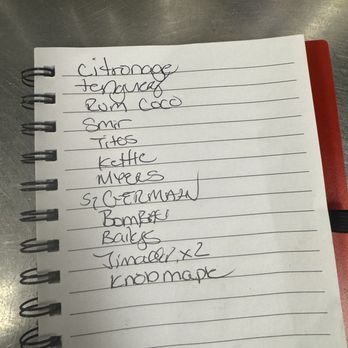 Citronage
tenquerg
Rum Coco
Smir
Titos
Kettle
Myers
St GERMAIN
Bombay
Baileys
Jimador x2
Knob maple